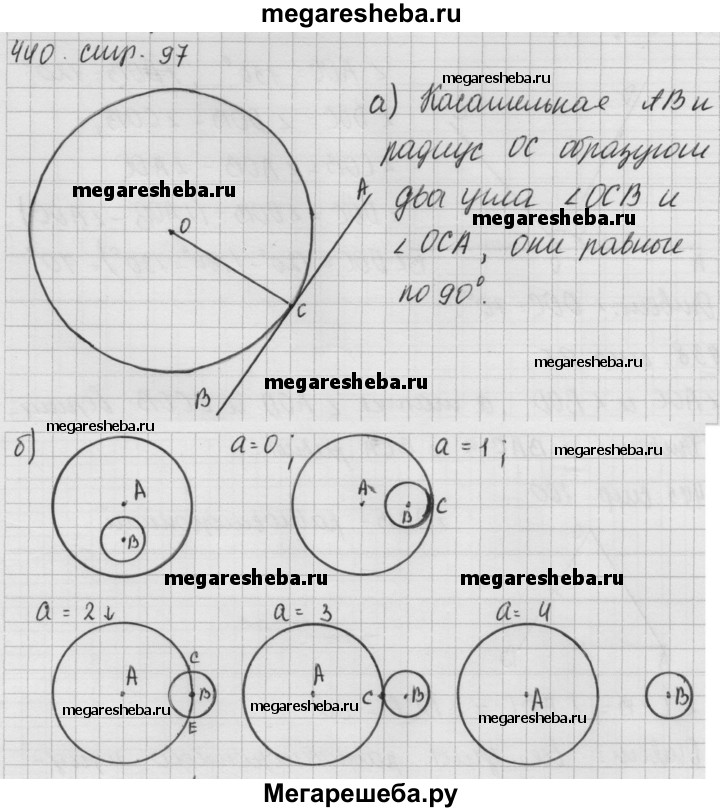 megaresheba.ru
440. стр. 97
megaresheba.ru
а) Касательная AB и
радиус OC образуют
megaresheba.ru
A
два угла ∠OCB и
megaresheba.ru
O
∠OCA, они равные
по 90°.
C
megaresheba.ru
megaresheba.ru
B
megaresheba.ru
б)
a=0;
a=1;
megaresheba.ru
A
A
B
C
B
megaresheba.ru
megaresheba.ru
a = 2↓
a = 3
a= 4
C
A
B
A
C
B
A
B
megaresheba.ru
megaresheba.ru
megaresheba.ru
E
Мегарешеба.ру